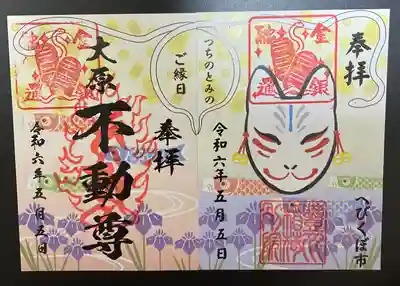 奉拝
へびくぼ市
金銀
融通
令和六年五月五日
つちのとみの
ご縁日
奉拝
金銀
融通
大原
不動尊
令和六年五月五日